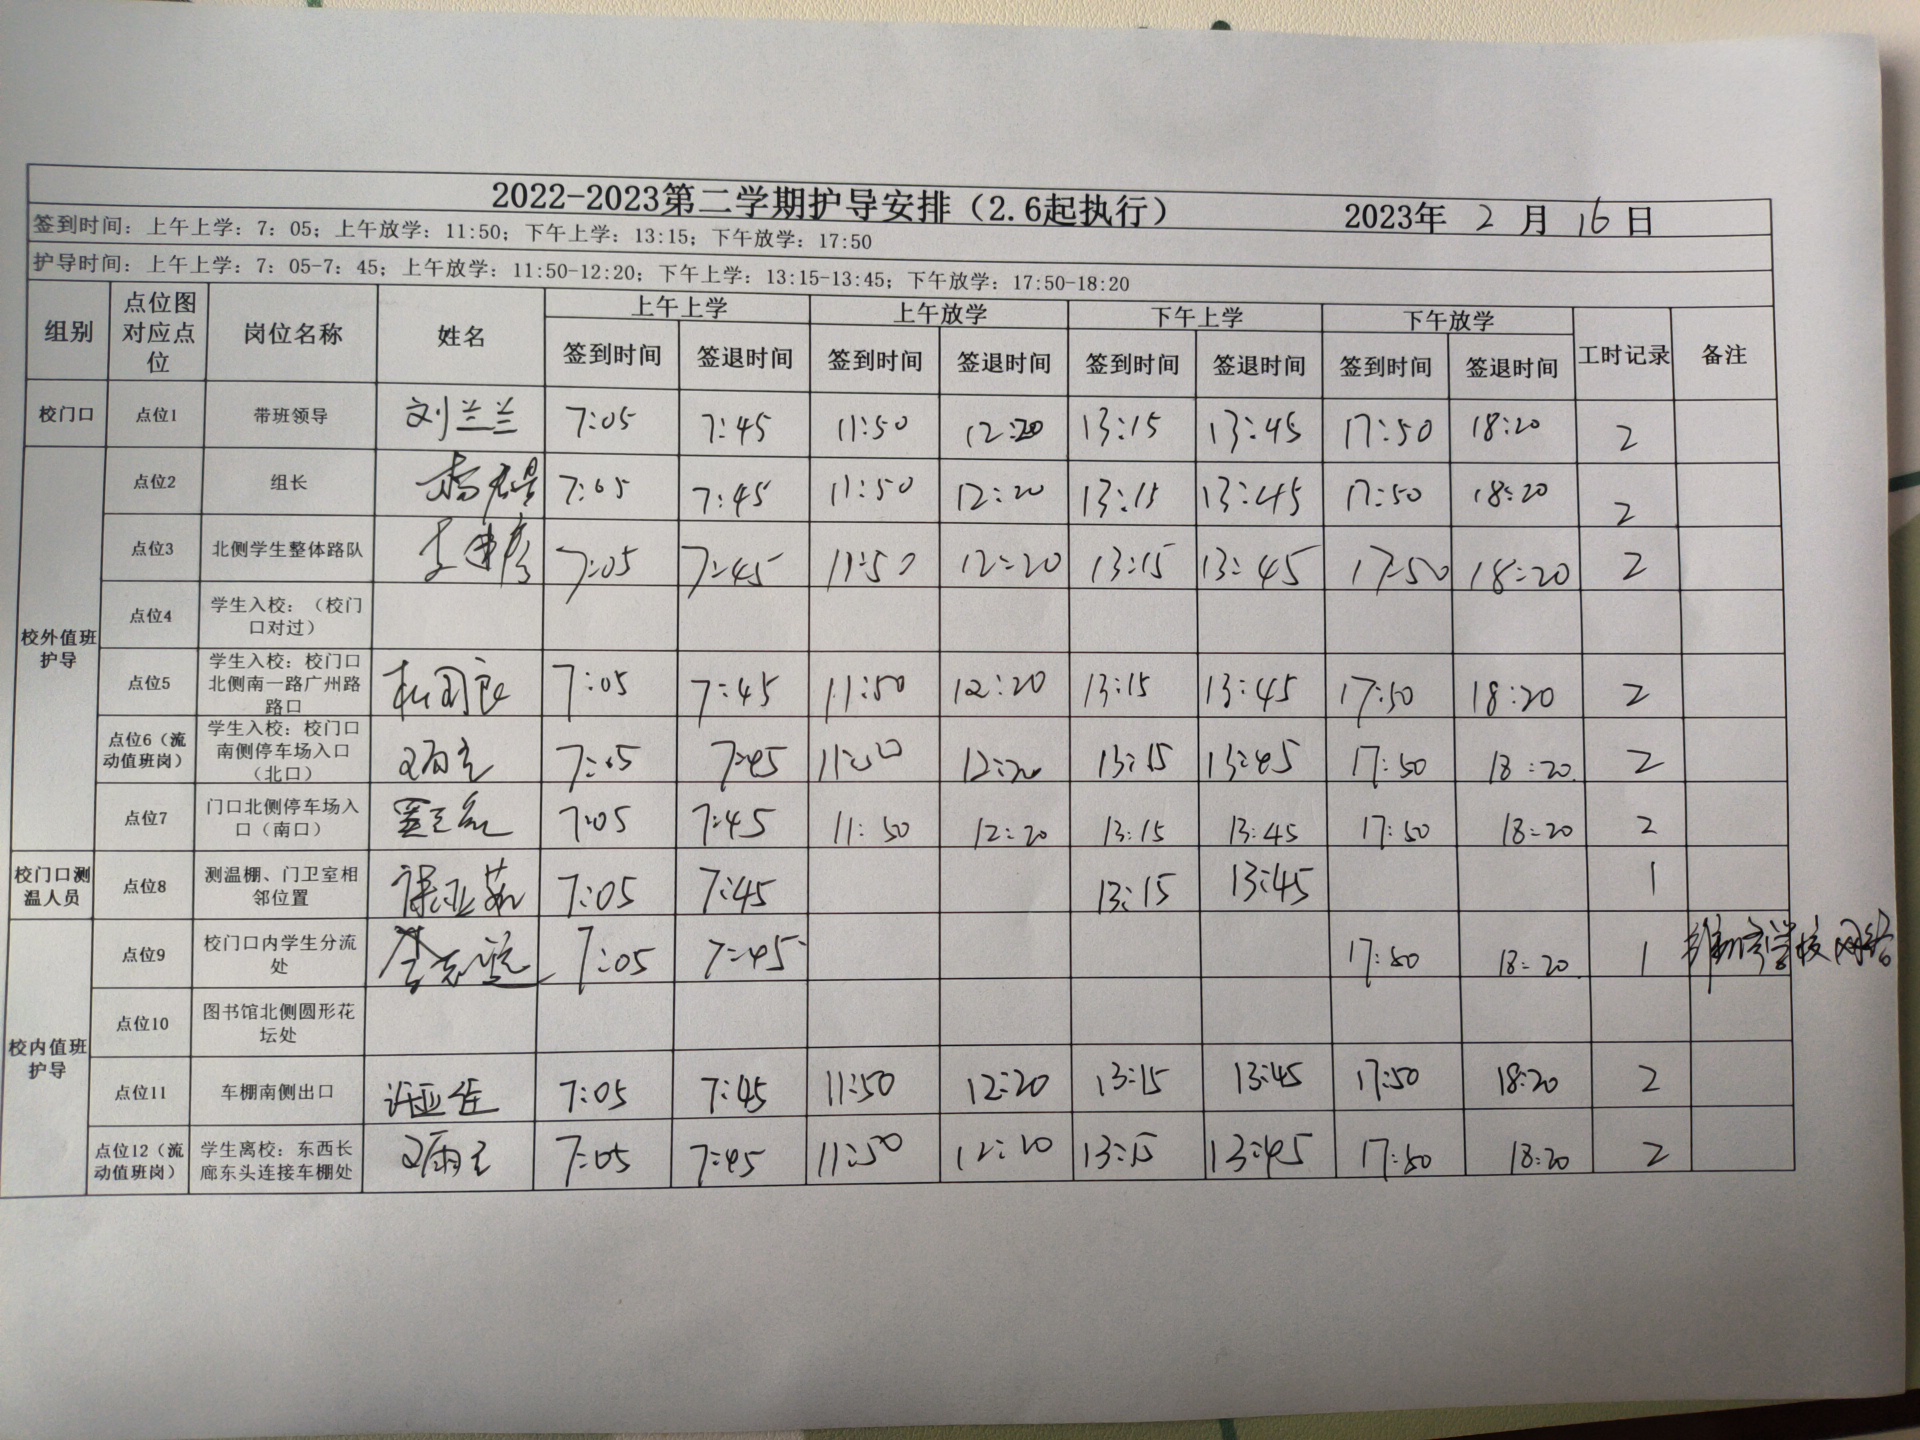 2022-2023第二学期护导安排（2.6起执行） 2023年 2 月 16 日
签到时间：上午上学：7：05；上午放学：11:50；下午上学：13:15；下午放学：17:50
护导时间：上午上学：7：05-7：45；上午放学：11:50-12:20；下午上学：13:15-13:45；下午放学：17:50-18:20
组别 点位图对应点位 岗位名称 姓名 上午上学 上午放学 下午上学 下午放学 工时记录 备注
签到时间 签退时间 签到时间 签退时间 签到时间 签退时间 签到时间 签退时间
校门口 点位1 带班领导 刘兰兰 7:05 7:45 11:50 12:20 13:15 13:45 17:50 18:20 2
校外值班护导
点位2 组长 7:05 7:45 11:50 12:20 13:15 13:45 17:50 18:20 2
点位3 北侧学生整体路队 7:05 7:45 11:50 12:20 13:15 13:45 17:50 18:20 2
点位4 学生入校：（校门口对过）
点位5 学生入校：校门口北侧南一路广州路路口 7:05 7:45 11:50 12:20 13:15 13:45 17:50 18:20 2
点位6（流动值班岗） 学生入校：校门口南侧停车场入口（北口） 7:05 7:45 11:50 12:20 13:15 13:45 17:50 18:20 2
点位7 门口北侧停车场入口（南口） 7:05 7:45 11:50 12:20 13:15 13:45 17:50 18:20 2
校门口测温人员 点位8 测温棚、门卫室相邻位置 7:05 7:45 13:15 13:45 1
校内值班护导
点位9 校门口内学生分流处 7:05 7:45 17:50 18:20 1 学校网络
点位10 图书馆北侧圆形花坛处
点位11 车棚南侧出口 许亚佳 7:05 7:45 11:50 12:20 13:15 13:45 17:50 18:20 2
点位12（流动值班岗） 学生离校：东西长廊东头连接车棚处 7:05 7:45 11:50 12:20 13:15 13:45 17:50 18:20 2